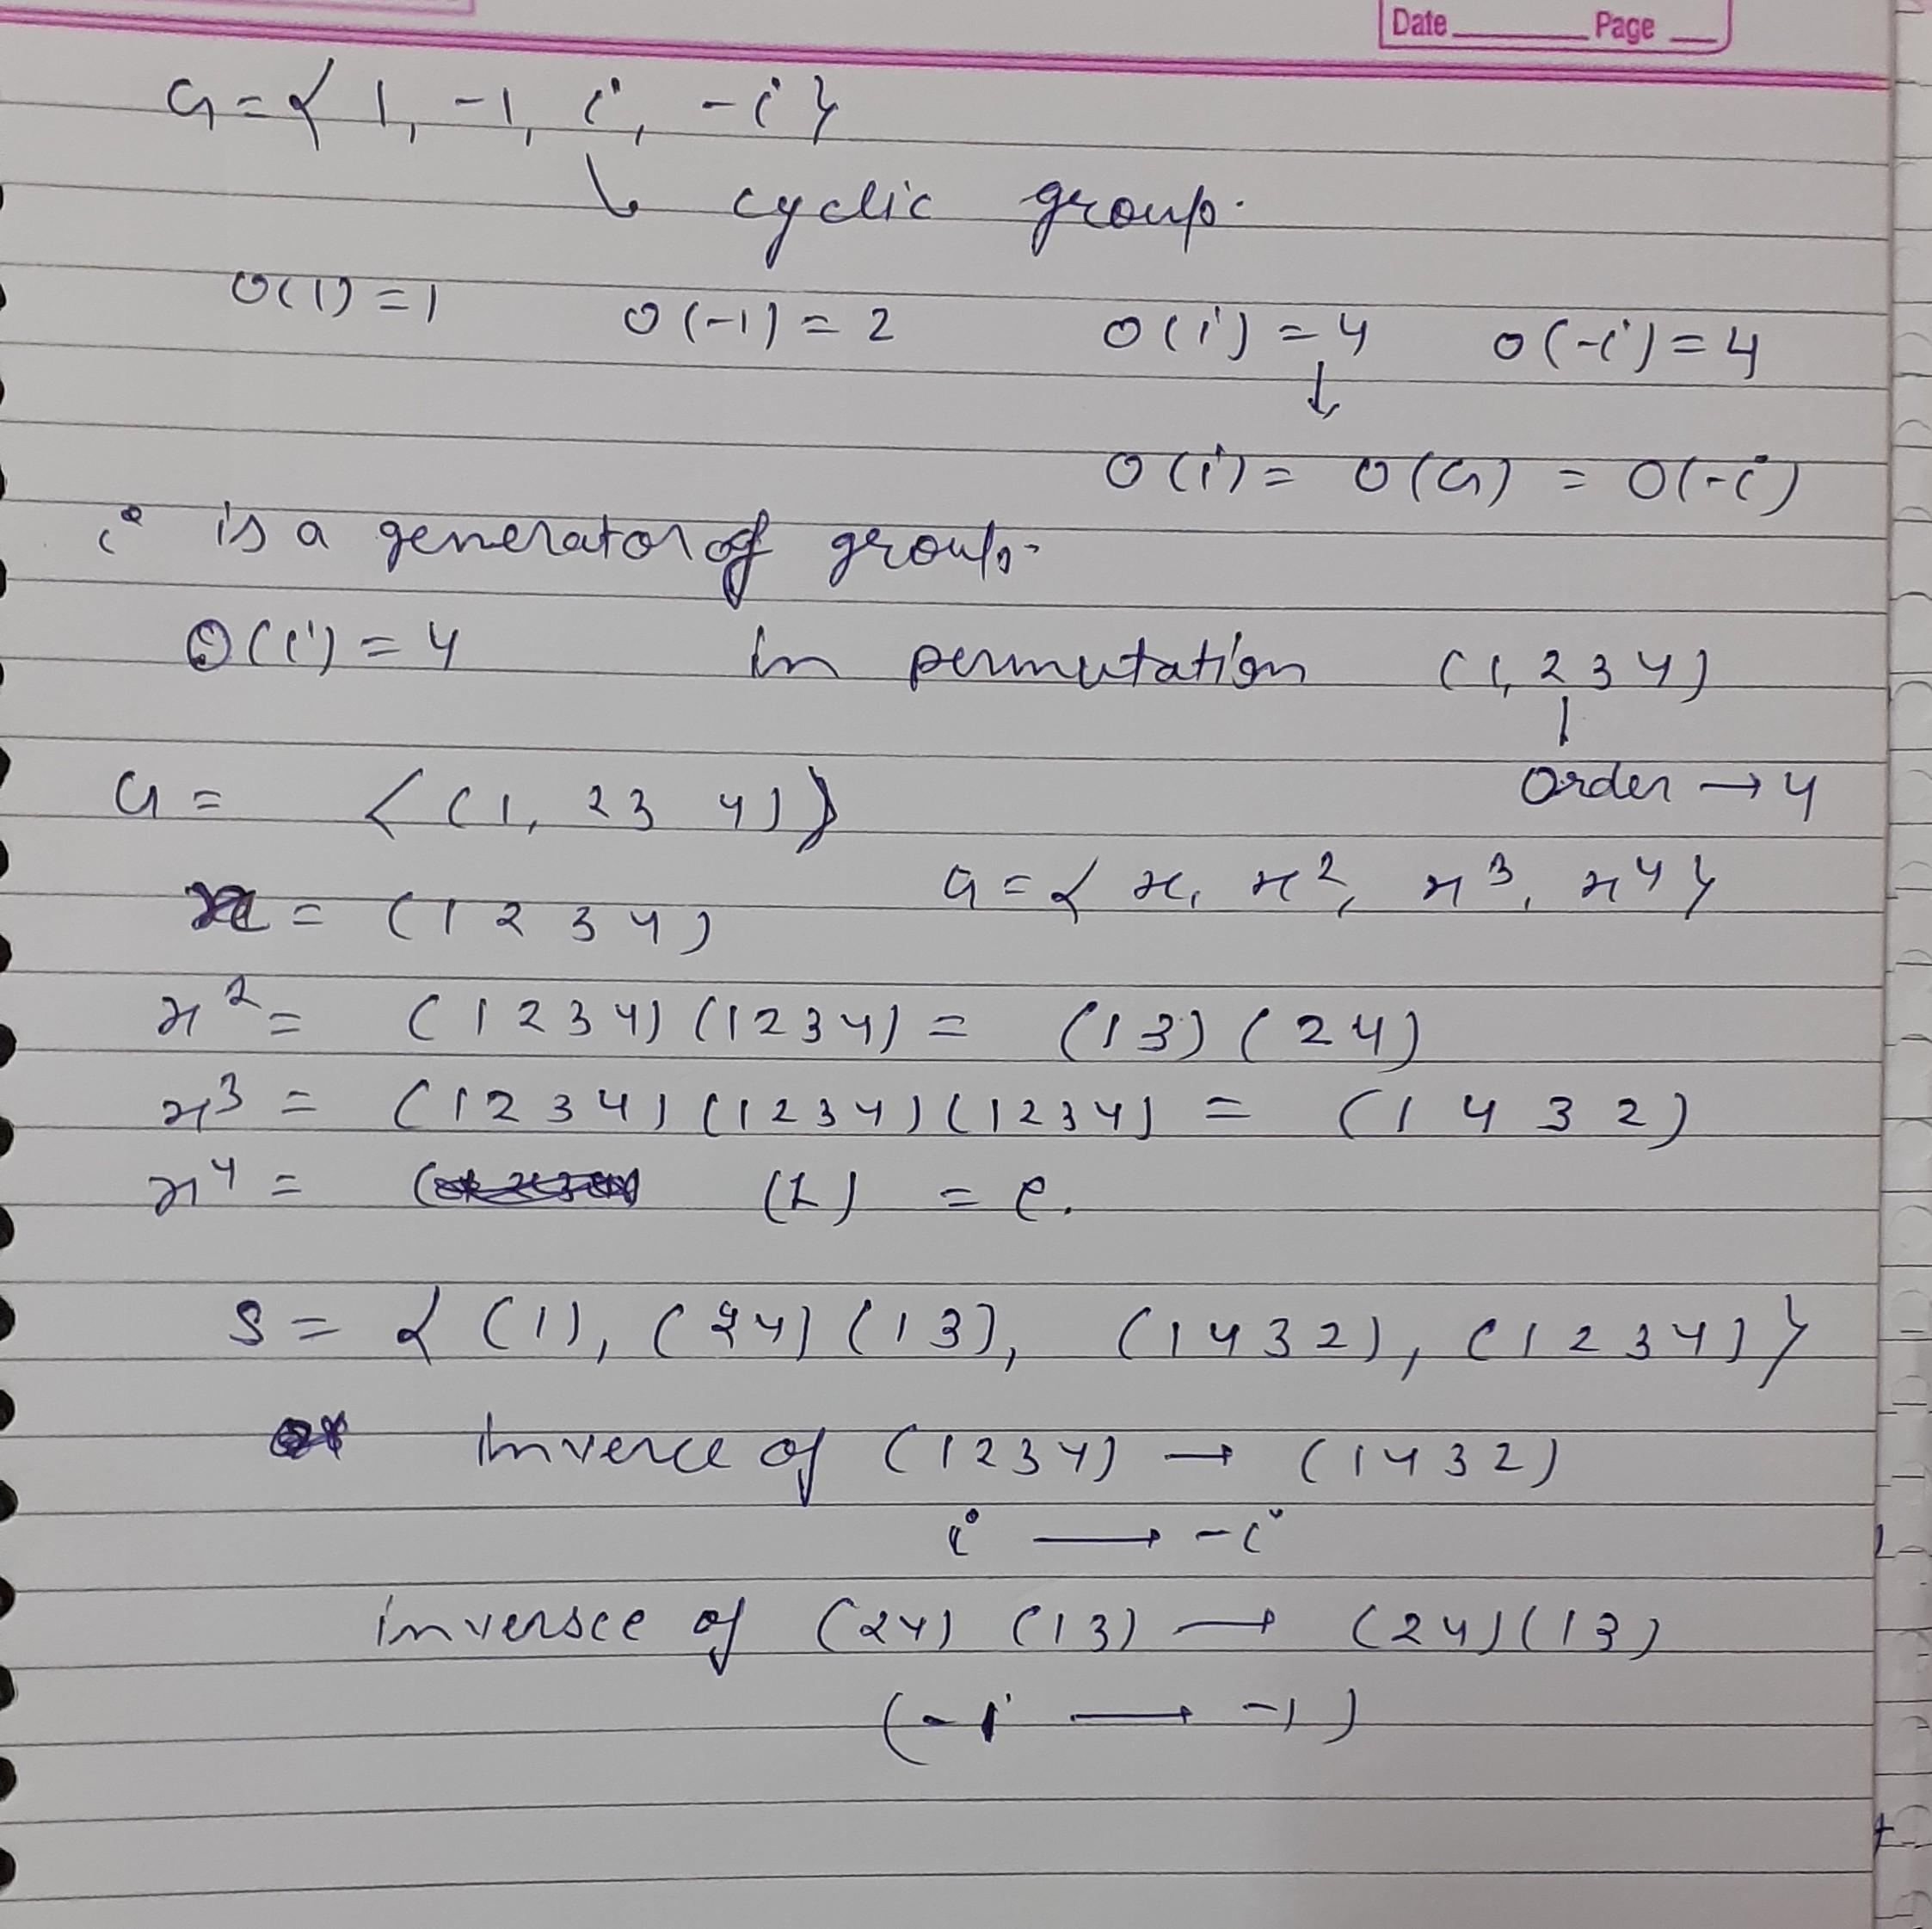 Date Page
G = { 1, -1, i, -i }
↳ cyclic group.
O(1) = 1 O(-1) = 2 O(i) = 4 O(-i) = 4
↓
O(i) = O(G) = O(-i)
i is a generator of group.
O(i) = 4 in permutation (1, 2 3 4)
|
G = < (1, 2 3 4) > Order → 4
x = (1 2 3 4) G = { x, x², x³, x⁴ }
x² = (1 2 3 4) (1 2 3 4) = (1 3) (2 4)
x³ = (1 2 3 4) (1 2 3 4) (1 2 3 4) = (1 4 3 2)
x⁴ = (1) = e.
S = { (1), (2 4) (1 3), (1 4 3 2), (1 2 3 4) }
inverce of (1 2 3 4) → (1 4 3 2)
i → -i
inversce of (2 4) (1 3) → (2 4) (1 3)
(-1 → -1)